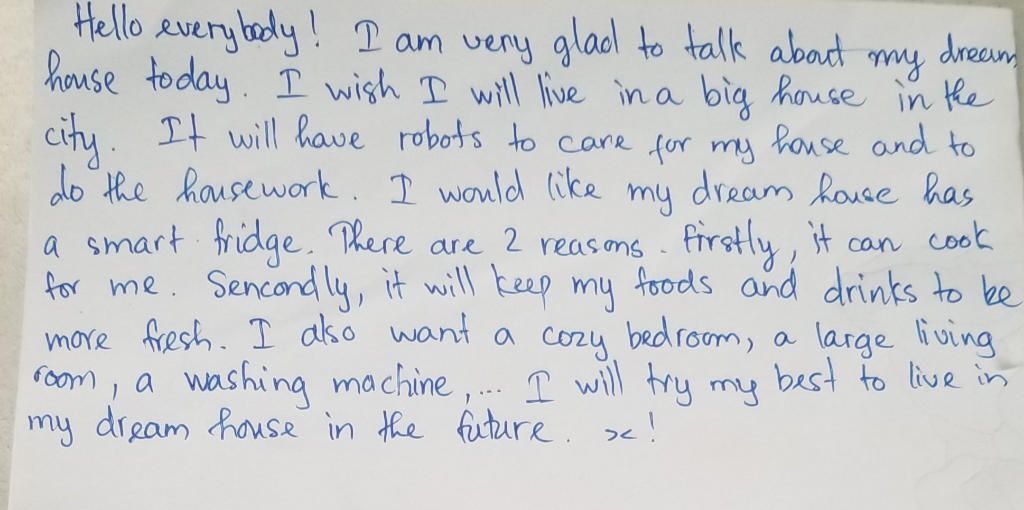 Hello everybody! I am very glad to talk about my dream
house today. I wish I will live in a big house in the
city. It will have robots to care for my house and to
do the housework. I would like my dream house has
a smart fridge. There are 2 reasons. Firstly, it can cook
for me. Sencondly, it will keep my foods and drinks to be
more fresh. I also want a cozy bedroom, a large living
room, a washing machine,... I will try my best to live in
my dream house in the future.